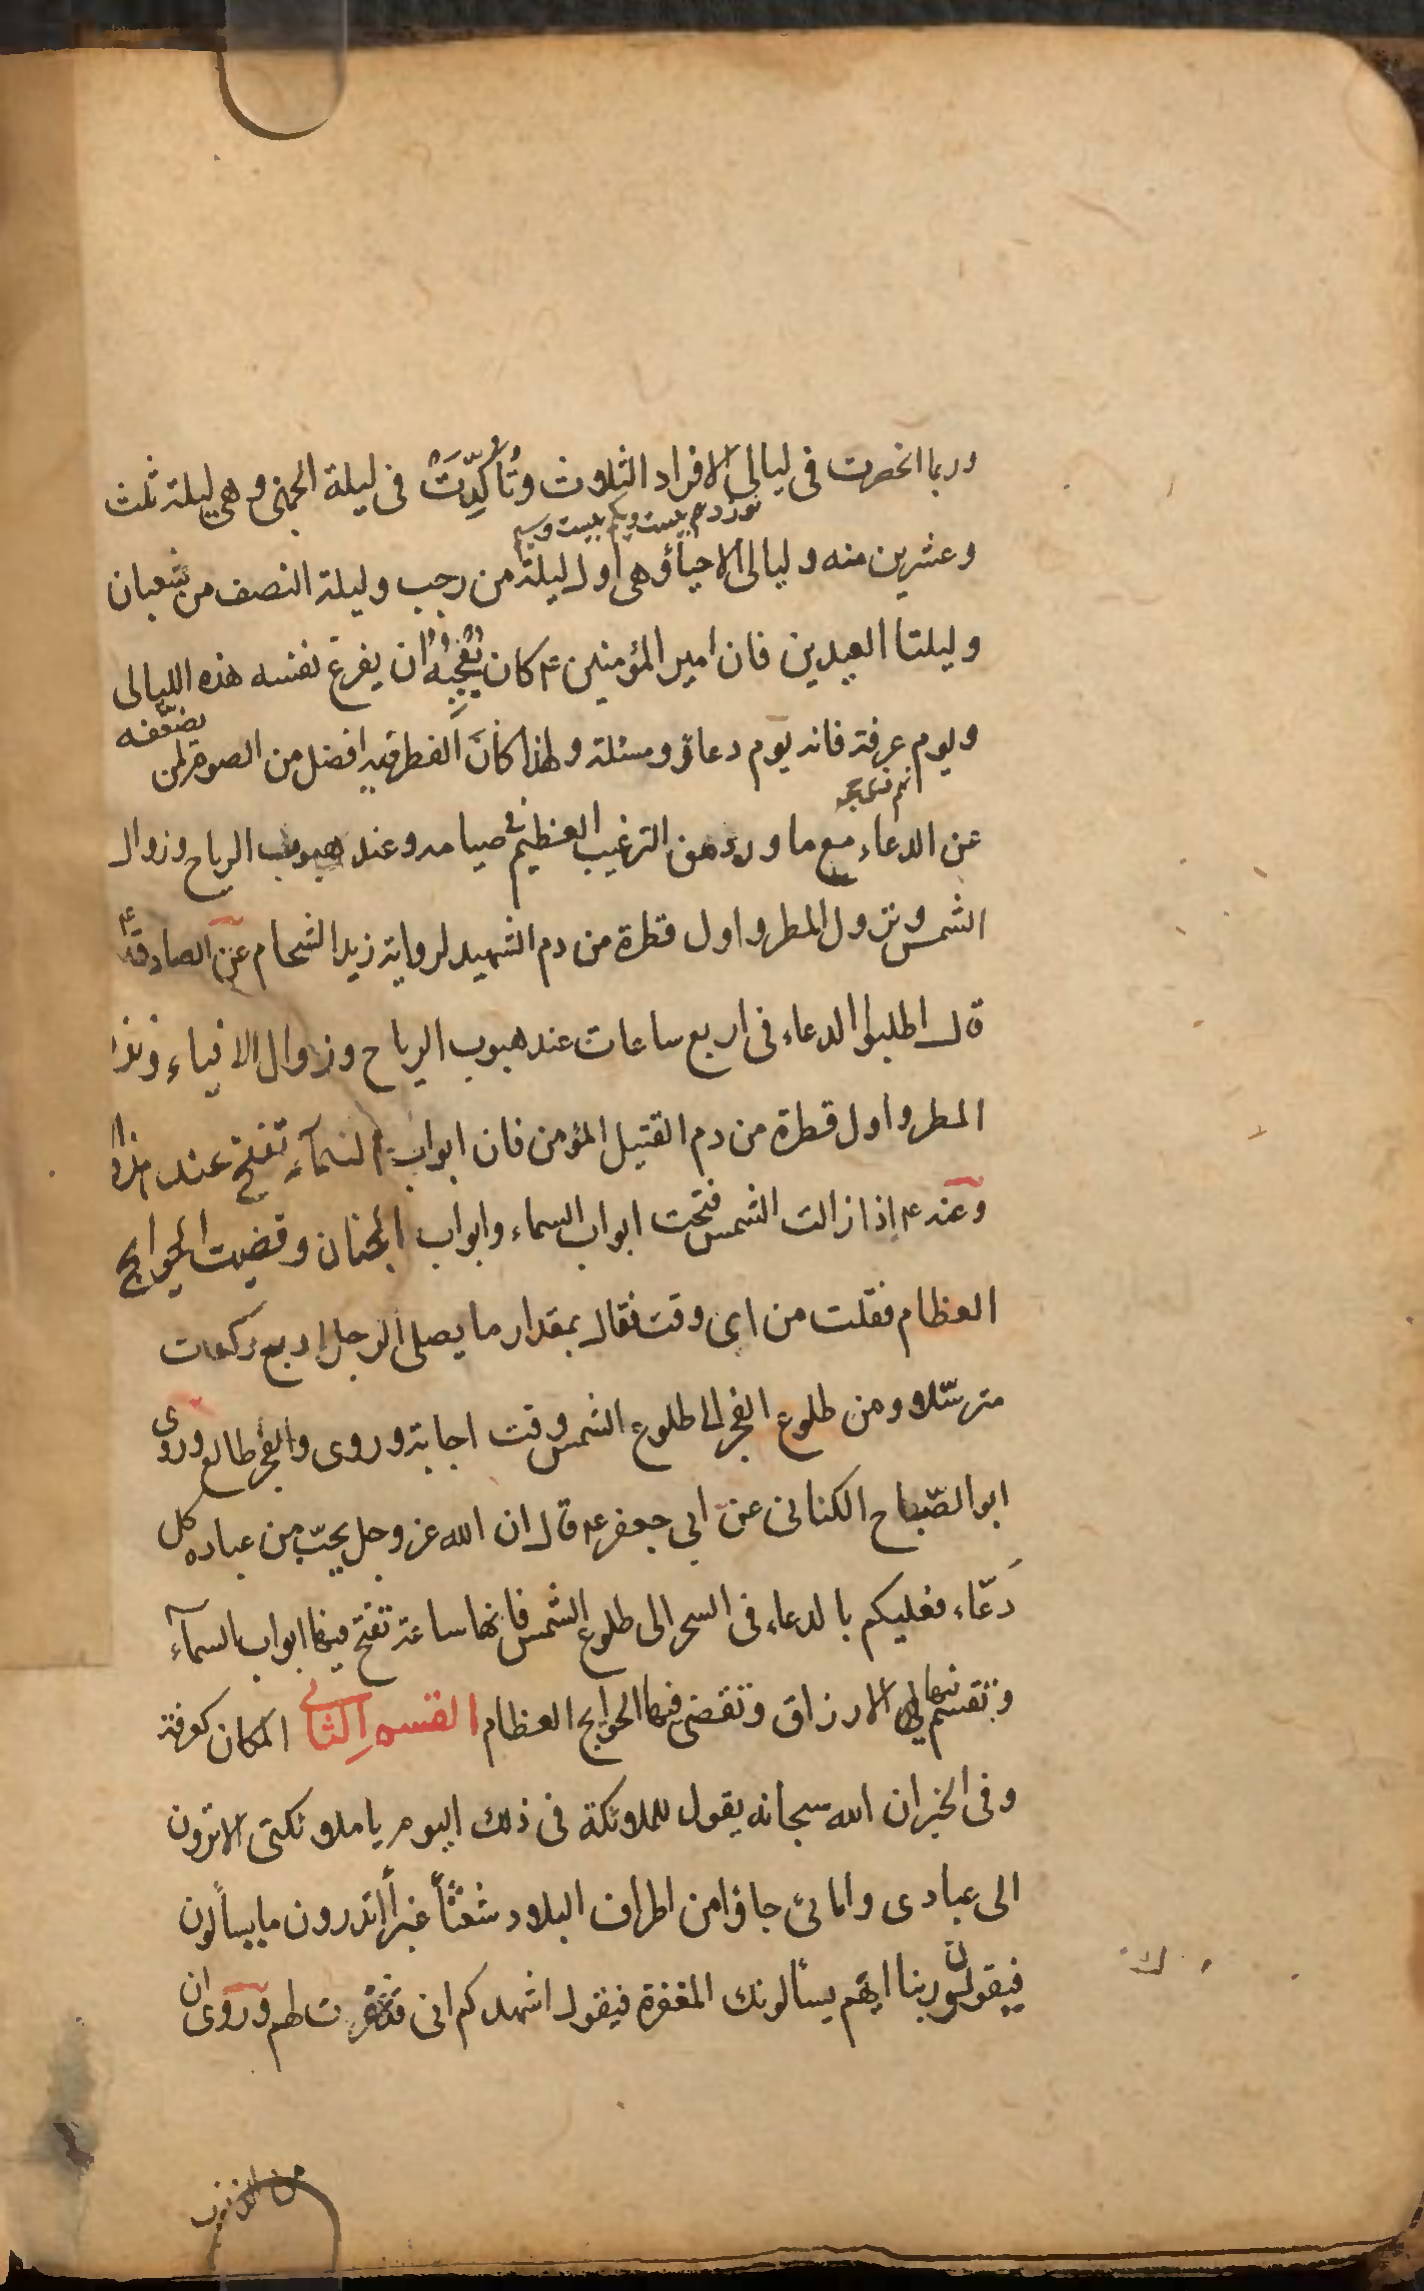 وربما انحصرت فى ليالى الافراد الثلاث وتأكّدت فى ليلة الجهنى وهى ليلة ثلث
نوزدهم بيست ويكم بيست وسيم
وعشرين منه وليالى الاحياء وهى اول ليلة من رجب وليلة النصف من شعبان
وليلتا العيدين فان امير المؤمنين ع كان يعجبه ان يفرغ نفسه هذه الليالى
ويوم عرفة فانه يوم دعاء ومسئلة ولهذا كان الفطر فيه افضل من الصوم لمن يضعّفه
عن الدعاء مع ما ورد من الترغيب العظيم فى صيامه وعند هبوب الرياح وزوال
الشمس ونزول المطر واول قطرة من دم الشهيد لرواية زيد الشحام عن الصادق ع
قال اطلبوا الدعاء فى اربع ساعات عند هبوب الرياح وزوال الافياء ونزول
المطر واول قطرة من دم القتيل المؤمن فان ابواب السمآء تفتح عند هذه
وعنه ع اذا زالت الشمس فتحت ابواب السماء وابواب الجنان وقضيت الحوايج
العظام فقلت من اى وقت فقال بمقدار ما يصلى الرجل اربع ركعات
مترسّلا ومن طلوع الفجر الى طلوع الشمس وقت اجابة وروى والفجر طالع وروى
ابو الصّباح الكنانى عن ابى جعفر ع قال ان الله عز وجل يحبّ من عباده كل
دَعّاء فعليكم بالدعاء فى السحر الى طلوع الشمس فانها ساعة تفتح فيها ابواب السمآء
وتقسم فيها الارزاق وتقضى فيها الحوايج العظام القسم الثانى المكان كعرفة
وفى الخبر ان الله سبحانه يقول للملائكة فى ذلك اليوم يا ملائكتى الا ترون
الى عبادى وامائى جاؤا من اطراف البلاد شعثاً غبراً اتدرون ما يسألون
فيقولون ربنا انهم يسألونك المغفرة فيقول اشهدكم انى قد غفرت لهم وروى ان
من الذنوب